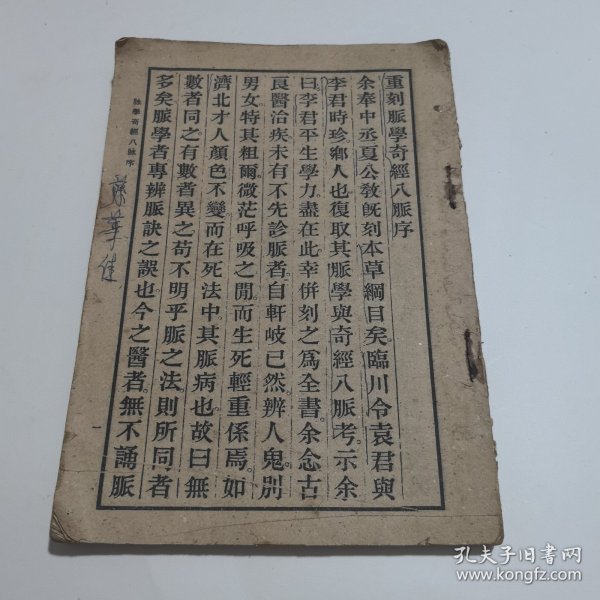 重刻脈學奇經八脈序
余奉中丞夏公敎旣刻本草綱目矣。臨川令袁君與
李君時珍鄉人也復取其脈學與奇經八脈考。示余
曰。李君平生學力盡在此。幸倂刻之爲全書。余念古
良醫治疾未有不先診脈者。自軒岐已然辨人鬼。別
男女特其粗爾。微茫呼吸之閒。而生死輕重係焉。如
濟北才人顏色不變。而在死法中。其脈病也。故曰無
數者同之有數者異之苟不明乎脈之法。則所同者
多矣脈學者專辨脈訣之誤也。今之醫者。無不誦脈
脉學奇經八脉序
孔夫子旧书网
www.kongfz.com